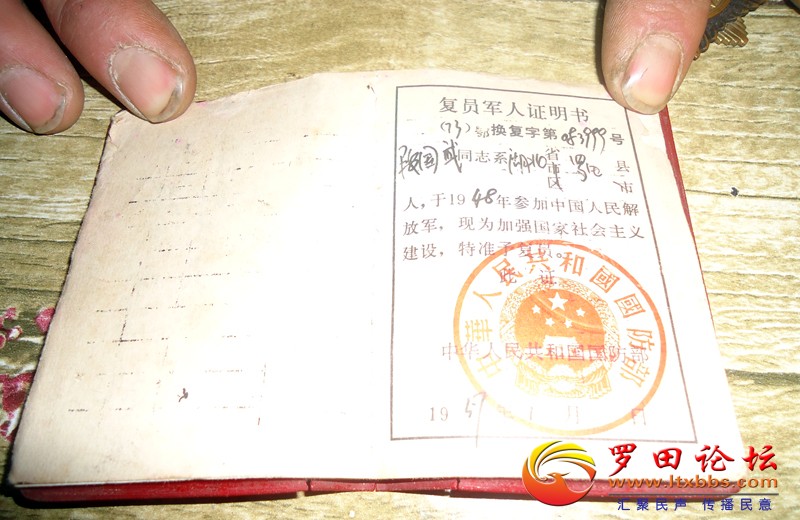 复员军人证明书
(73)鄂换复字第 083999 号
同志系湖北省市区罗田县市
人，于1948年参加中国人民解
放军，现为加强国家社会主义
建设，特准予复员。
此证
中华人民共和国国防部
中華人民共和國國防部
1957年 月 日
罗田论坛
www.ltxbbs.com
汇聚民声 传播民意